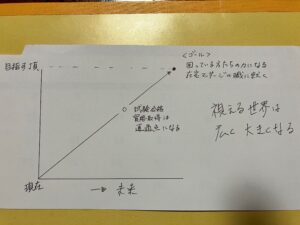 <ゴール>
困っている方たちの力になる
在宅ワーカーの職に就く
目指す頂
試験合格
資格取得は
通過点になる
視える世界は
広く 大きくなる
現在
→ 未来